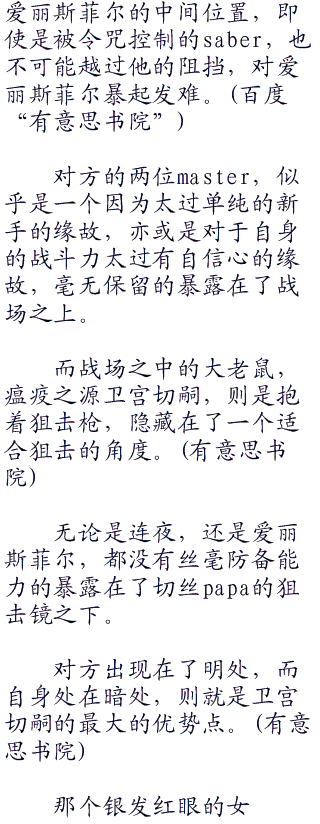 爱丽斯菲尔的中间位置，即
使是被令咒控制的saber，也
不可能越过他的阻挡，对爱
丽斯菲尔暴起发难。(百度
“有意思书院”)
对方的两位master，似
乎是一个因为太过单纯的新
手的缘故，亦或是对于自身
的战斗力太过有自信心的缘
故，毫无保留的暴露在了战
场之上。
而战场之中的大老鼠，
瘟疫之源卫宫切嗣，则是抱
着狙击枪，隐藏在了一个适
合狙击的角度。(有意思书
院)
无论是连夜，还是爱丽
斯菲尔，都没有丝毫防备能
力的暴露在了切丝papa的狙
击镜之下。
对方出现在了明处，而
自身处在暗处，则就是卫宫
切嗣的最大的优势点。(有意
思书院)
那个银发红眼的女